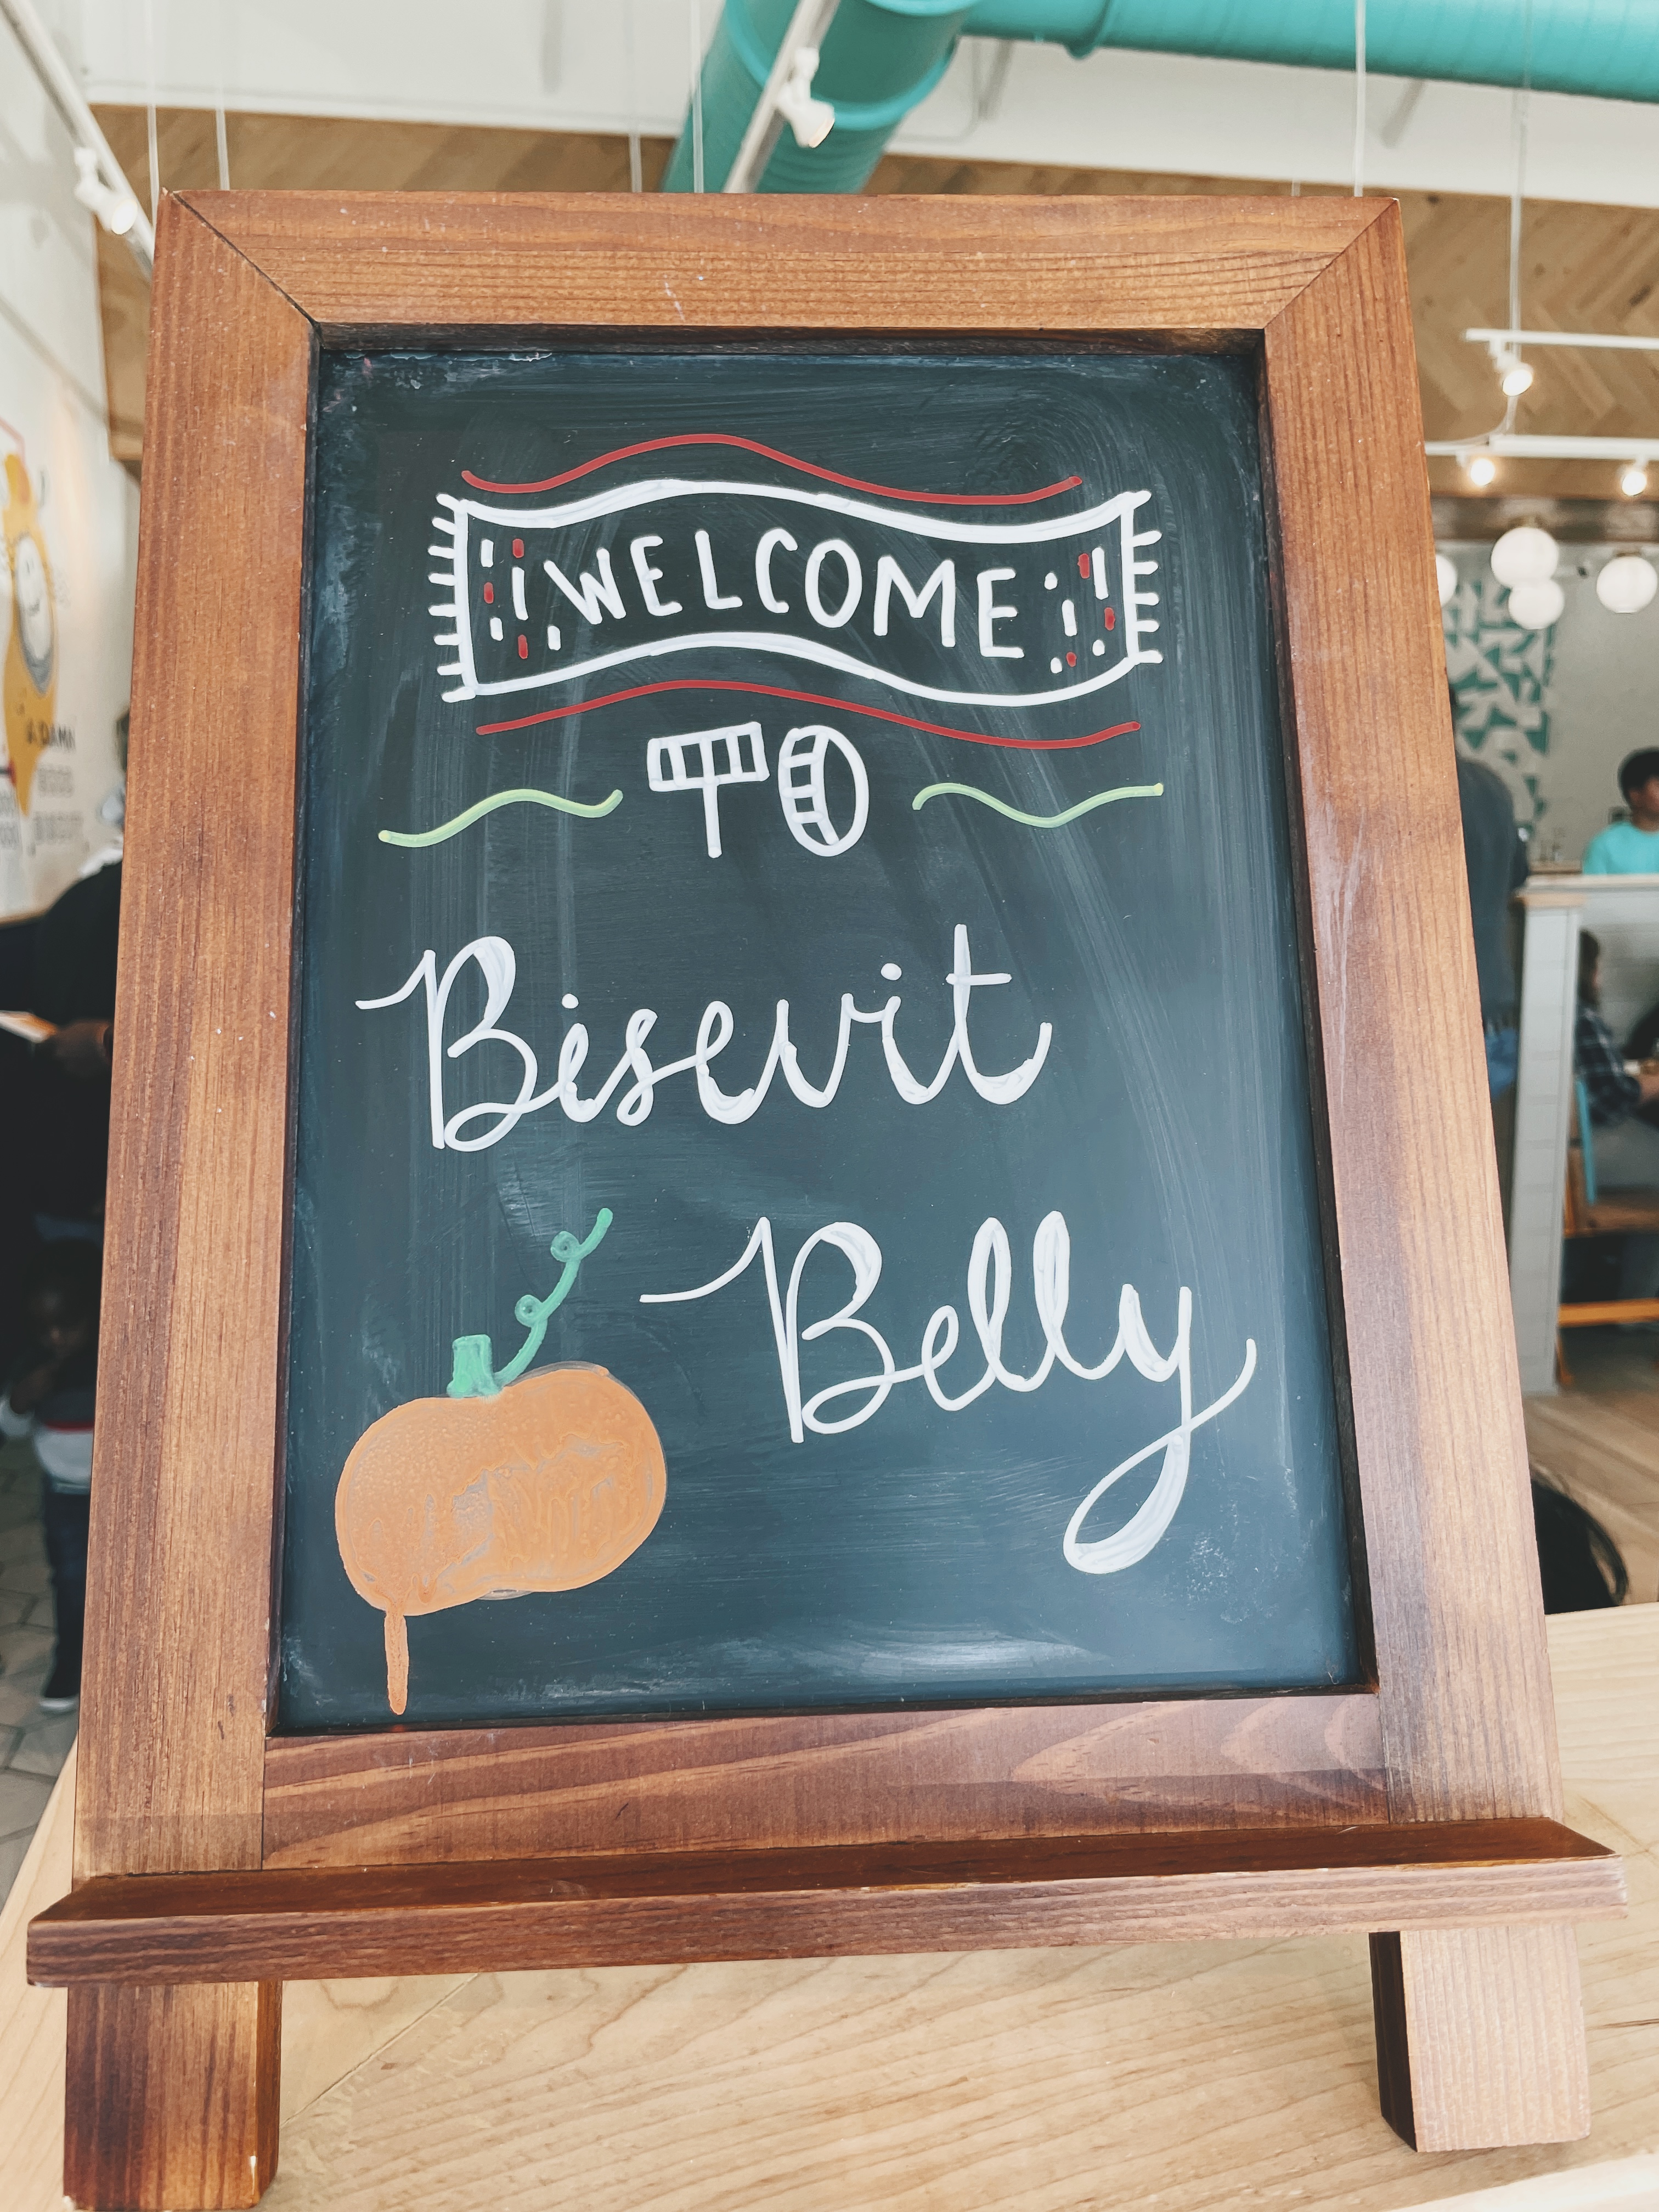 WELCOME
TO
Biscuit
Belly
DAMN